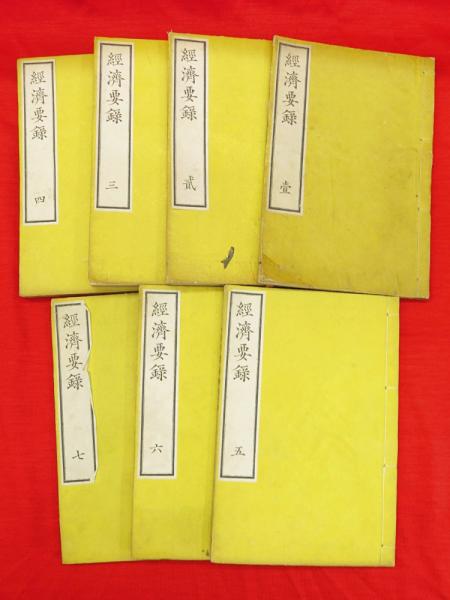 經濟要錄 壹
經濟要錄 貳
經濟要錄 三
經濟要錄 四
經濟要錄 五
經濟要錄 六
經濟要錄 七